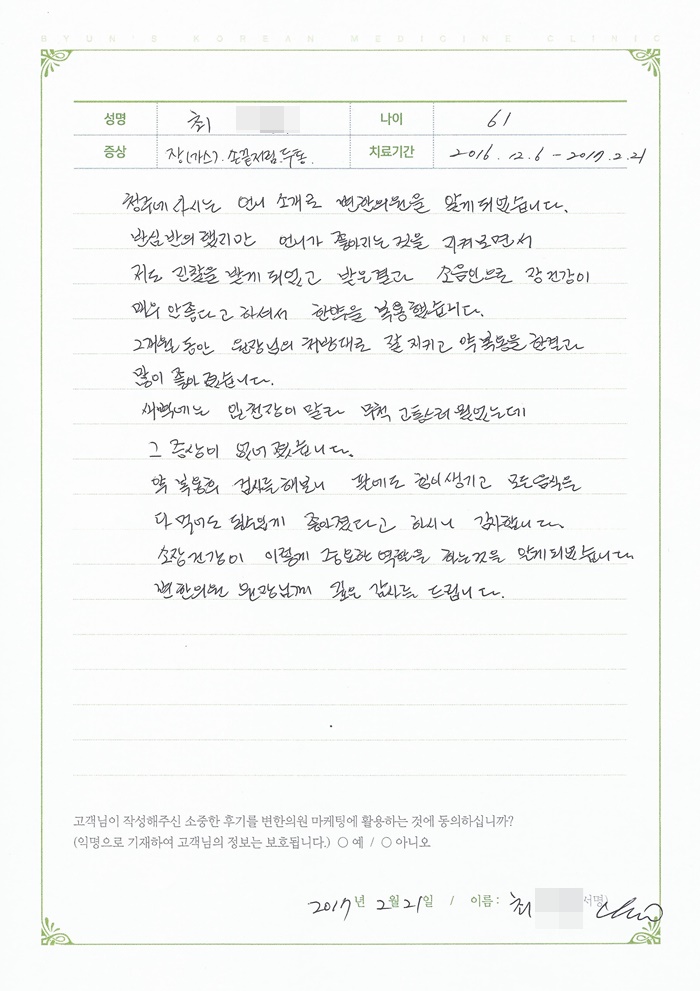 BYUN'S KOREAN MEDICINE CLINIC
성명 최 나이 61
증상 장(가스). 손끝저림. 두통. 치료기간 2016. 12. 6 - 2017. 2. 21
청주에 사시는 언니 소개로 변한의원을 알게 되었습니다.
반심반의 했지만 언니가 좋아지는 것을 지켜보면서
저도 진찰을 받게 되었고 받은결과 소음인으로 장건강이
매우 안좋다고 하셔서 한약을 복용했습니다.
2개월 동안 원장님의 처방대로 잘 지키고 약복용을 한결과
많이 좋아졌습니다.
새벽에는 입천장이 말라 무척 고통스러웠었는데
그 증상이 없어졌습니다.
약 복용후 검사를 해보니 맥에도 힘이 생기고 모든음식을
다 먹어도 될만큼 좋아졌다고 하시니 감사합니다.
소장건강이 이렇게 중요한 역할을 하는것을 알게되었습니다.
변한의원 원장님께 깊은 감사를 드립니다.
고객님이 작성해주신 소중한 후기를 변한의원 마케팅에 활용하는 것에 동의하십니까?
(익명으로 기재하여 고객님의 정보는 보호됩니다.) ○ 예 / ○ 아니오
2017년 2월 21일 / 이름 : 최 서명)